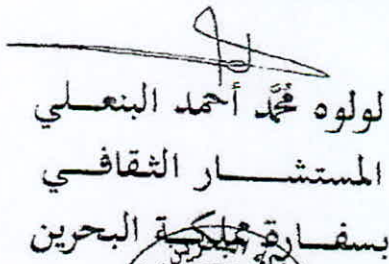 لولوه محمد أحمد البنعلي
المستشار الثقافي
بسفارة مملكة البحرين